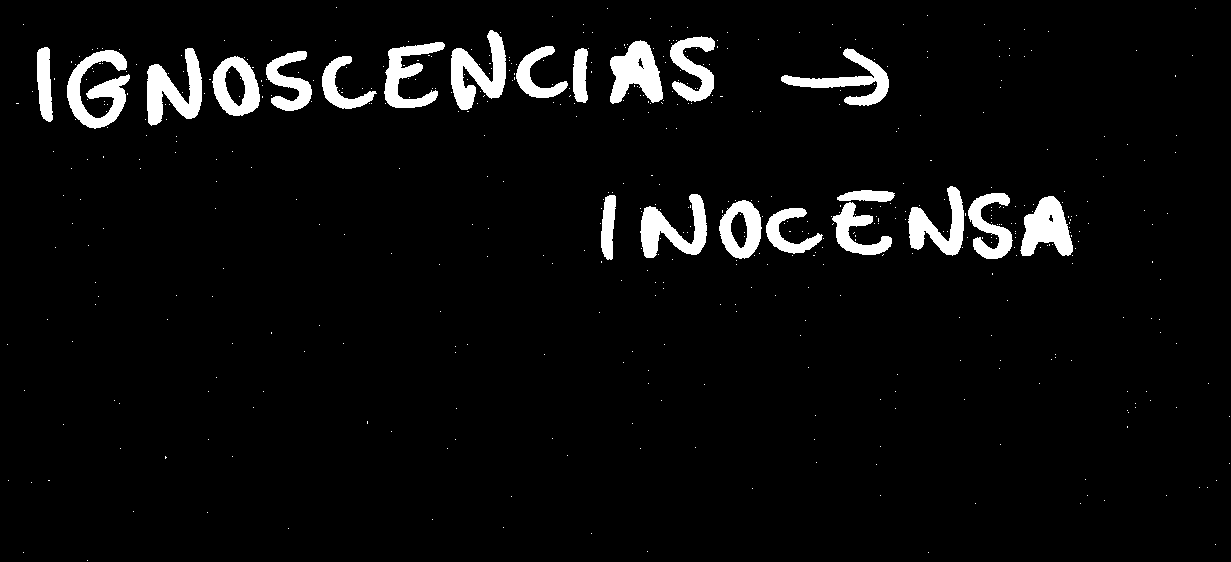 IGNOSCENCIAS →
INOCENSA